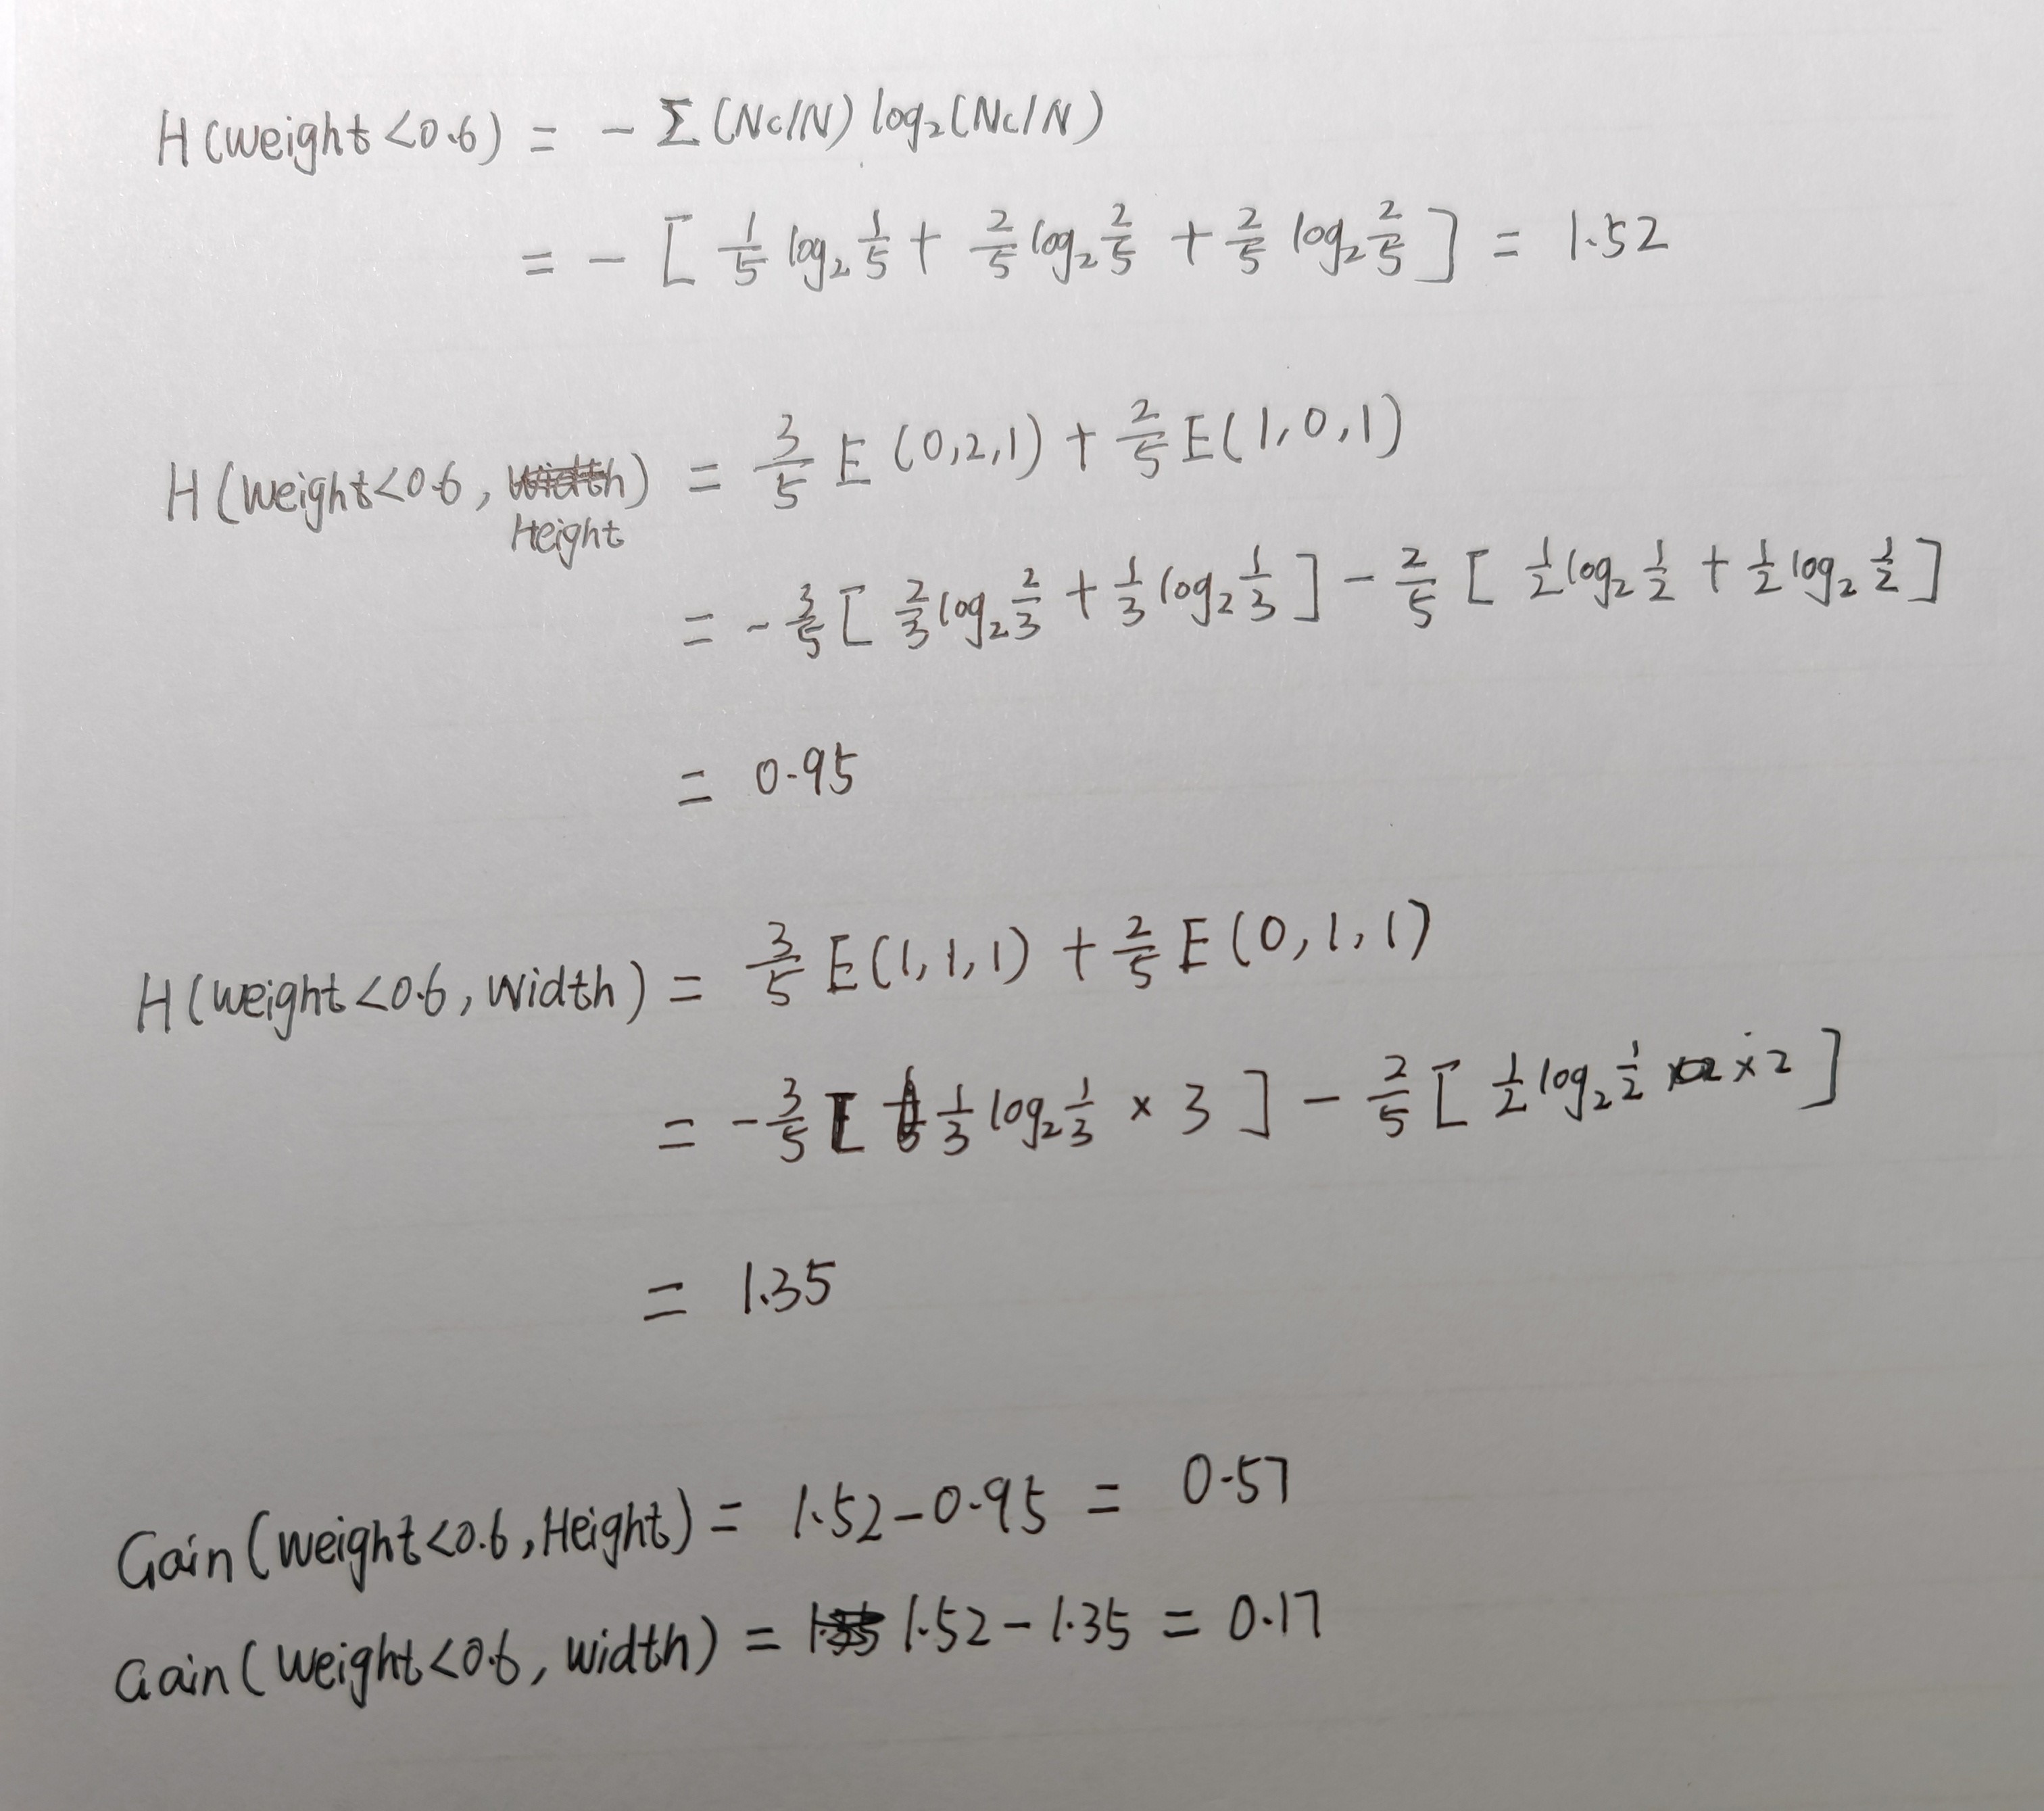 H(weight<0.6) = - Σ(Nc/N) log₂(Nc/N)
= - [ 1/5 log₂ 1/5 + 2/5 log₂ 2/5 + 2/5 log₂ 2/5 ] = 1.52
H(weight<0.6, Width) = 3/5 E(0,2,1) + 2/5 E(1,0,1)
Height
= - 3/5 [ 2/3 log₂ 2/3 + 1/3 log₂ 1/3 ] - 2/5 [ 1/2 log₂ 1/2 + 1/2 log₂ 1/2 ]
= 0.95
H(weight<0.6, Width) = 3/5 E(1,1,1) + 2/5 E(0,1,1)
= - 3/5 [ 1/3 log₂ 1/3 × 3 ] - 2/5 [ 1/2 log₂ 1/2 × 2 ]
= 1.35
Gain(weight<0.6, Height) = 1.52 - 0.95 = 0.57
Gain(weight<0.6, width) = 1.52 - 1.35 = 0.17